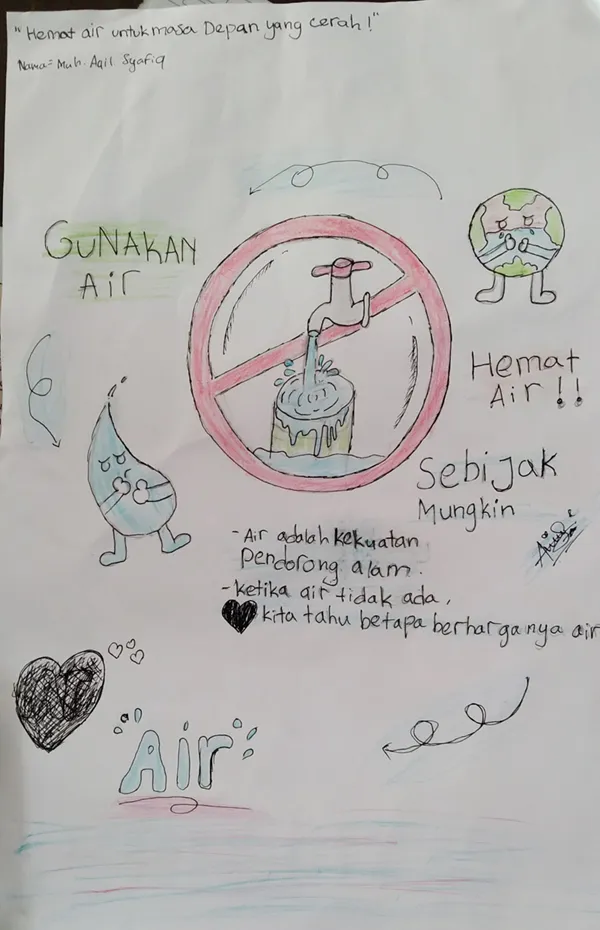 "Hemat air untuk masa Depan yang cerah!"
Nama= Muh. Aqil Syafiq
GUNAKAN
AIr
Hemat
Air!!
Sebijak
Mungkin
- Air adalah kekuatan
Pendorong alam.
- ketika air tidak ada,
kita tahu betapa berharganya air
Air